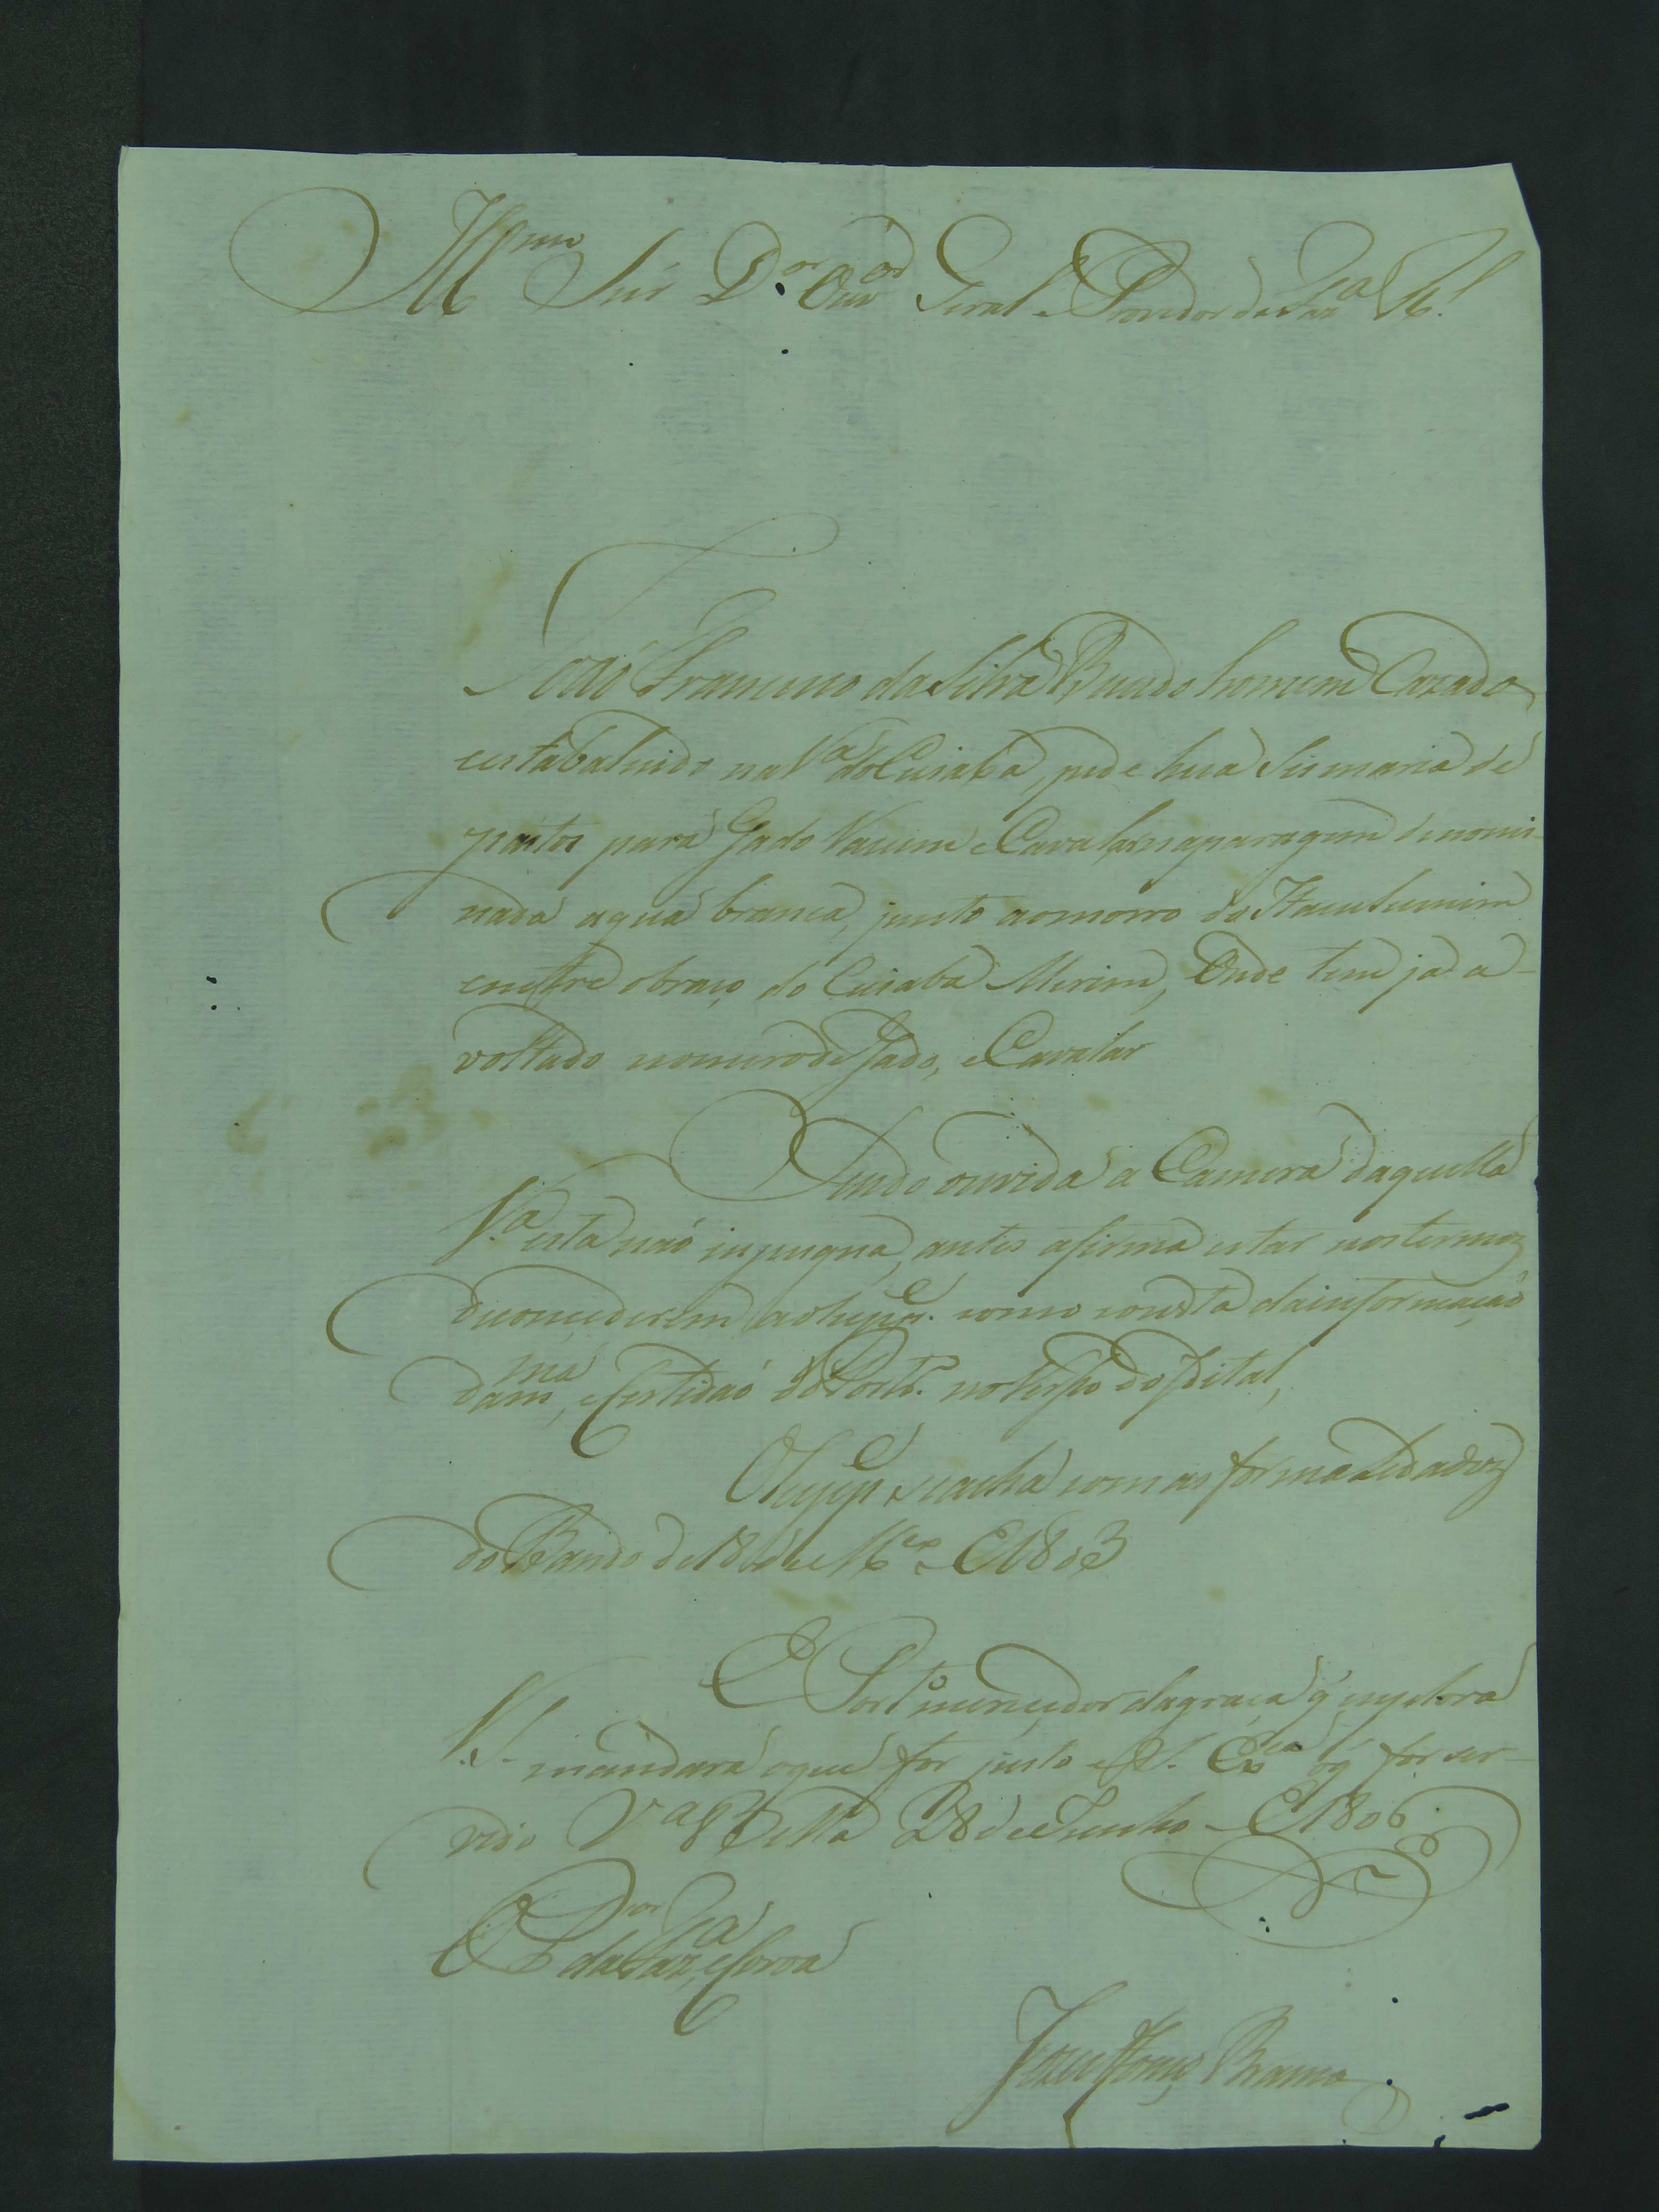 Illmo Snr Dor Ouvor Geral e Provedor da Fazda Rl.
João Francisco da Silva Buено homem Cazado
estabalecido na Va do Cuiabá, pede huã Sismaria de
pastos para Gado Vacum e Cavalar na paragem denomi-
nada agua branca, junto ao morro do Itaculumim
entre o braço do Cuiaba Mirim, Onde tem já a-
voltado nomero de Gado, e Cavalar
Sendo ouvida a Camera daquella
Va esta não inpugna, antes afirma estar nos termoz
de concederem ao Suppe. como consta da informação
da mma, e Certidaó do Porto. no verso do Edital,
O Suppe se acha com as formalidadez
do Bando de 18 de de 1803
E Porto merecedor da graça q implora
V.S. mandará o que for justo e S. Exca o q for ser-
vido Va Bella 28 de Junho de 1806
O Por da Fazda, e Coroa
Joze Gomes Ramos